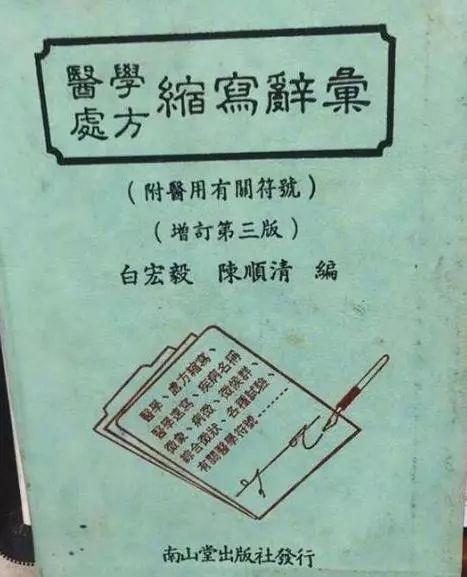 醫學處方縮寫辭彙
（附醫用有關符號）
（增訂第三版）
白宏毅 陳順清 編
醫學、處方縮寫、
醫學速寫、疾病名稱
徵象、病徵、徵候群、
綜合徵狀、各種試驗、
有關醫學符號……
南山堂出版社發行